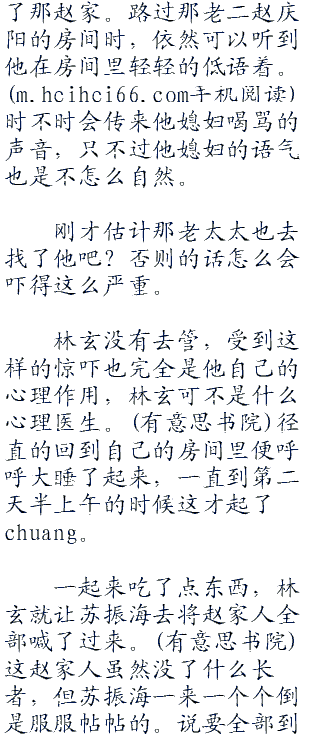 了那赵家。路过那老二赵庆
阳的房间时，依然可以听到
他在房间里轻轻的低语着。
(m.hcihci66.com手机阅读)
时不时会传来他媳妇喝骂的
声音，只不过他媳妇的语气
也是不怎么自然。
刚才估计那老太太也去
找了他吧？否则的话怎么会
吓得这么严重。
林玄没有去管，受到这
样的惊吓也完全是他自己的
心理作用，林玄可不是什么
心理医生。(有意思书院)径
直的回到自己的房间里便呼
呼大睡了起来，一直到第二
天半上午的时候这才起了
chuang。
一起来吃了点东西，林
玄就让苏振海去将赵家人全
部喊了过来。(有意思书院)
这赵家人虽然没了什么长
者，但苏振海一来一个个倒
是服服帖帖的。说要全部到